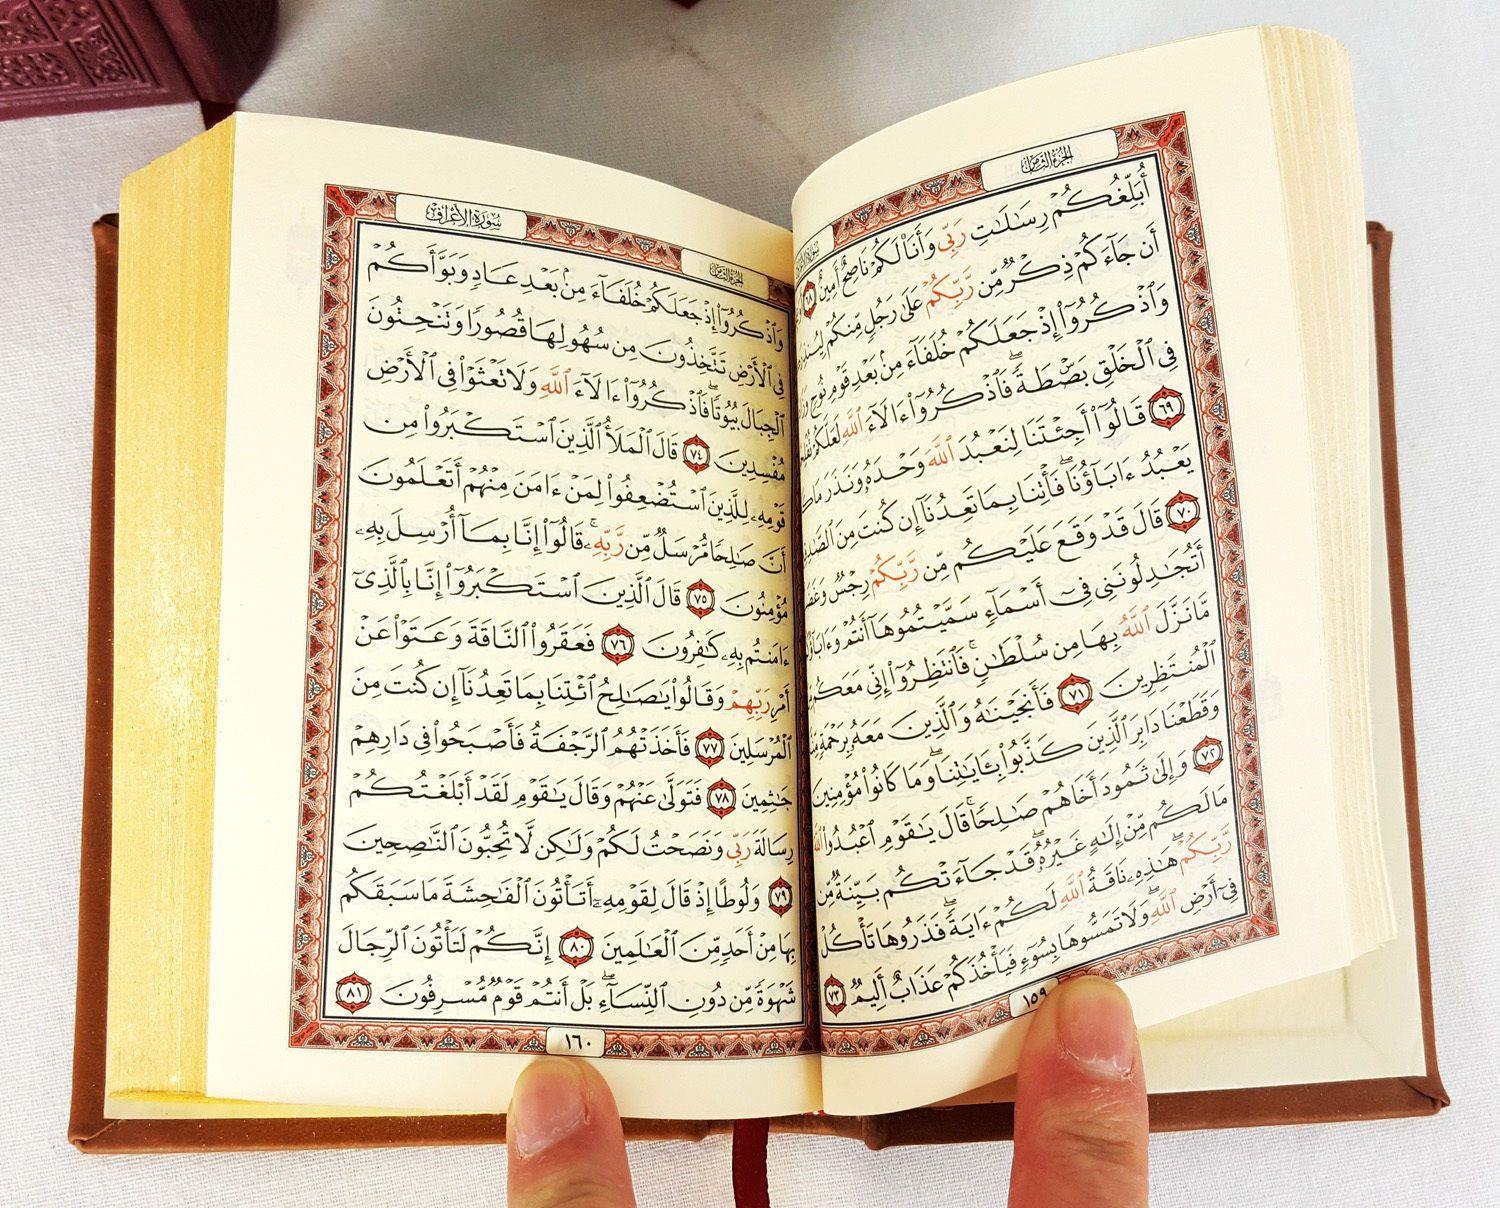 الجزء الثامن
أُبَلِّغُكُمْ رِسَٰلَٰتِ رَبِّى وَأَنَا۠ لَكُمْ نَاصِحٌ أَمِينٌ ٦٨
أَن جَآءَكُمْ ذِكْرٌ مِّن رَّبِّكُمْ عَلَىٰ رَجُلٍ مِّنكُمْ
وَٱذْكُرُوٓا۟ إِذْ جَعَلَكُمْ خُلَفَآءَ مِنۢ بَعْدِ قَوْمِ نُوحٍ
فِى ٱلْخَلْقِ بَصْۜطَةً ۖ فَٱذْكُرُوٓا۟ ءَالَآءَ ٱللَّهِ لَعَلَّكُمْ
٦٩ قَالُوٓا۟ أَجِئْتَنَا لِنَعْبُدَ ٱللَّهَ وَحْدَهُۥ وَنَذَرَ
يَعْبُدُ ءَابَآؤُنَا ۖ فَأْتِنَا بِمَا تَعِدُنَآ إِن كُنتَ مِنَ
٧٠ قَالَ قَدْ وَقَعَ عَلَيْكُم مِّن رَّبِّكُمْ رِجْسٌ
أَتُجَٰدِلُونَنِى فِىٓ أَسْمَآءٍ سَمَّيْتُمُوهَآ أَنتُمْ
مَّا نَزَّلَ ٱللَّهُ بِهَا مِن سُلْطَٰنٍ ۚ فَٱنتَظِرُوٓا۟ إِنِّى مَعَكُم
ٱلْمُنتَظِرِينَ ٧١ فَأَنجَيْنَٰهُ وَٱلَّذِينَ مَعَهُۥ بِرَحْمَةٍ
وَقَطَعْنَا دَابِرَ ٱلَّذِينَ كَذَّبُوا۟ بِـَٔايَٰتِنَا ۖ وَمَا كَانُوا۟ مُؤْمِنِينَ
٧٢ وَإِلَىٰ ثَمُودَ أَخَاهُمْ صَٰلِحًا ۗ قَالَ يَٰقَوْمِ ٱعْبُدُوا۟ ٱللَّهَ
مَا لَكُم مِّنْ إِلَٰهٍ غَيْرُهُۥ ۖ قَدْ جَآءَتْكُم بَيِّنَةٌ مِّن
رَّبِّكُمْ ۖ هَٰذِهِۦ نَاقَةُ ٱللَّهِ لَكُمْ ءَايَةً ۖ فَذَرُوهَا تَأْكُلْ
فِىٓ أَرْضِ ٱللَّهِ ۖ وَلَا تَمَسُّوهَا بِسُوٓءٍ فَيَأْخُذَكُمْ عَذَابٌ أَلِيمٌ ٧٣
١٥٩
الجزء الثامن
سورة الأعراف
وَٱذْكُرُوٓا۟ إِذْ جَعَلَكُمْ خُلَفَآءَ مِنۢ بَعْدِ عَادٍ وَبَوَّأَكُمْ
فِى ٱلْأَرْضِ تَتَّخِذُونَ مِن سُهُولِهَا قُصُورًا وَتَنْحِتُونَ
ٱلْجِبَالَ بُيُوتًا ۖ فَٱذْكُرُوٓا۟ ءَالَآءَ ٱللَّهِ وَلَا تَعْثَوْا۟ فِى ٱلْأَرْضِ
مُفْسِدِينَ ٧٤ قَالَ ٱلْمَلَأُ ٱلَّذِينَ ٱسْتَكْبَرُوا۟ مِن
قَوْمِهِۦ لِلَّذِينَ ٱسْتُضْعِفُوا۟ لِمَنْ ءَامَنَ مِنْهُمْ أَتَعْلَمُونَ
أَنَّ صَٰلِحًا مُّرْسَلٌ مِّن رَّبِّهِۦ ۚ قَالُوٓا۟ إِنَّا بِمَآ أُرْسِلَ بِهِۦ
مُؤْمِنُونَ ٧٥ قَالَ ٱلَّذِينَ ٱسْتَكْبَرُوٓا۟ إِنَّا بِٱلَّذِىٓ
ءَامَنتُم بِهِۦ كَٰفِرُونَ ٧٦ فَعَقَرُوا۟ ٱلنَّاقَةَ وَعَتَوْا۟ عَنْ
أَمْرِ رَبِّهِمْ وَقَالُوا۟ يَٰصَٰلِحُ ٱئْتِنَا بِمَا تَعِدُنَآ إِن كُنتَ مِنَ
ٱلْمُرْسَلِينَ ٧٧ فَأَخَذَتْهُمُ ٱلرَّجْفَةُ فَأَصْبَحُوا۟ فِى دَارِهِمْ
جَٰثِمِينَ ٧٨ فَتَوَلَّىٰ عَنْهُمْ وَقَالَ يَٰقَوْمِ لَقَدْ أَبْلَغْتُكُمْ
رِسَالَةَ رَبِّى وَنَصَحْتُ لَكُمْ وَلَٰكِن لَّا تُحِبُّونَ ٱلنَّٰصِحِينَ
٧٩ وَلُوطًا إِذْ قَالَ لِقَوْمِهِۦٓ أَتَأْتُونَ ٱلْفَٰحِشَةَ مَا سَبَقَكُم
بِهَا مِنْ أَحَدٍ مِّنَ ٱلْعَٰلَمِينَ ٨٠ إِنَّكُمْ لَتَأْتُونَ ٱلرِّجَالَ
شَهْوَةً مِّن دُونِ ٱلنِّسَآءِ ۚ بَلْ أَنتُمْ قَوْمٌ مُّسْرِفُونَ ٨١
١٦٠